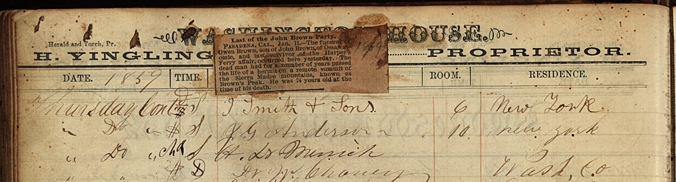 WASHINGTON HOUSE.
Herald and Torch, Pr.
H. YINGLING PROPRIETOR.
Last of the John Brown Party.
PASADENA, CAL., Jan. 11.—The funeral of
Owen Brown, son of John Brown, of Ossawat-
omie, and last survivor of the Harper's
Ferry affair, occurred here yesterday. The
deceased had for a number of years passed
the life of a hermit on a remote summit of
the Sierra Madre mountains, known as
Brown's Peak. He was 74 years old at the
time of his death.
DATE. 1859 TIME. ROOM. RESIDENCE.
Thursday Cont S I Smith & Sons 6 New York
" Do " S J G Anderson 10 new york
" Do " Cha S H. D Merrick
D Wash, Co